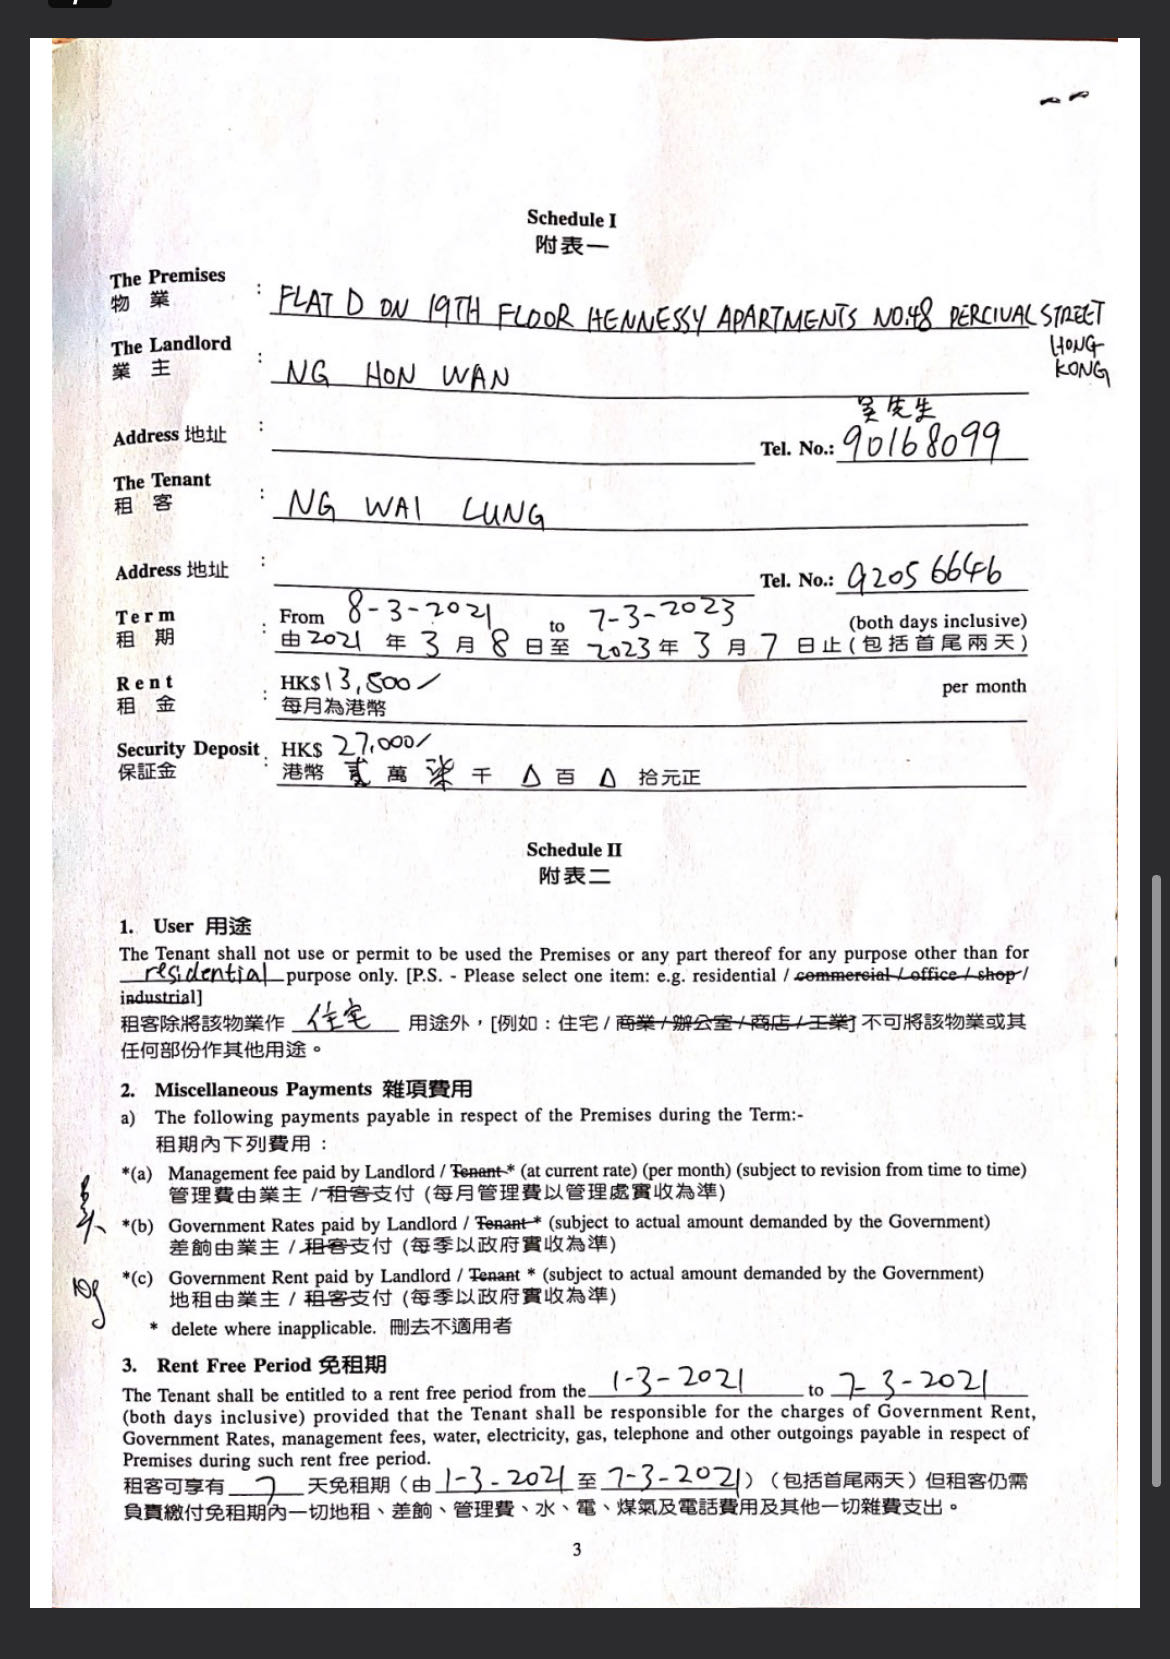 Schedule I
附表一
The Premises : FLAT D ON 19TH FLOOR HENNESSY APARTMENTS NO.48 PERCIVAL STREET
物業
HONG KONG
The Landlord : NG HON WAN
業主
吳先生
Address 地址 : Tel. No.: 90168099
The Tenant : NG WAI LUNG
租客
Address 地址 : Tel. No.: 9205 6646
Term : From 8-3-2021 to 7-3-2023 (both days inclusive)
租期 由 2021 年 3 月 8 日至 2023 年 3 月 7 日止 (包括首尾兩天)
Rent : HK$ 13,500/ per month
租金 每月為港幣
Security Deposit : HK$ 27,000/
保証金 港幣 貳 萬 柒 千 △ 百 △ 拾元正
Schedule II
附表二
1. User 用途
The Tenant shall not use or permit to be used the Premises or any part thereof for any purpose other than for
residential purpose only. [P.S. - Please select one item: e.g. residential / commercial / office / shop /
industrial]
租客除將該物業作 住宅 用途外，[例如：住宅 / 商業 / 辦公室 / 商店 / 工業] 不可將該物業或其
任何部份作其他用途。
2. Miscellaneous Payments 雜項費用
a) The following payments payable in respect of the Premises during the Term:-
租期內下列費用：
*(a) Management fee paid by Landlord / Tenant * (at current rate) (per month) (subject to revision from time to time)
管理費由業主 / 租客支付 (每月管理費以管理處實收為準)
*(b) Government Rates paid by Landlord / Tenant * (subject to actual amount demanded by the Government)
差餉由業主 / 租客支付 (每季以政府實收為準)
*(c) Government Rent paid by Landlord / Tenant * (subject to actual amount demanded by the Government)
地租由業主 / 租客支付 (每季以政府實收為準)
* delete where inapplicable. 刪去不適用者
3. Rent Free Period 免租期
The Tenant shall be entitled to a rent free period from the 1-3-2021 to 7-3-2021
(both days inclusive) provided that the Tenant shall be responsible for the charges of Government Rent,
Government Rates, management fees, water, electricity, gas, telephone and other outgoings payable in respect of
Premises during such rent free period.
租客可享有 7 天免租期（由 1-3-2021 至 7-3-2021）（包括首尾兩天）但租客仍需
負責繳付免租期內一切地租、差餉、管理費、水、電、煤氣及電話費用及其他一切雜費支出。
3